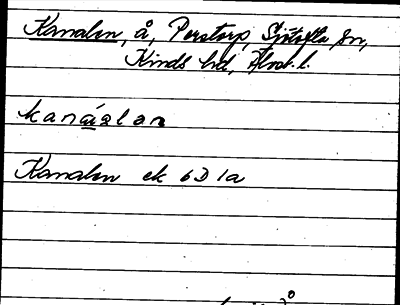 Kanalen, å, Perstorp, Sjötofta sn,
Kinds hd, Älvsb. l.
kanáalan
Kanalen ek 6D1a